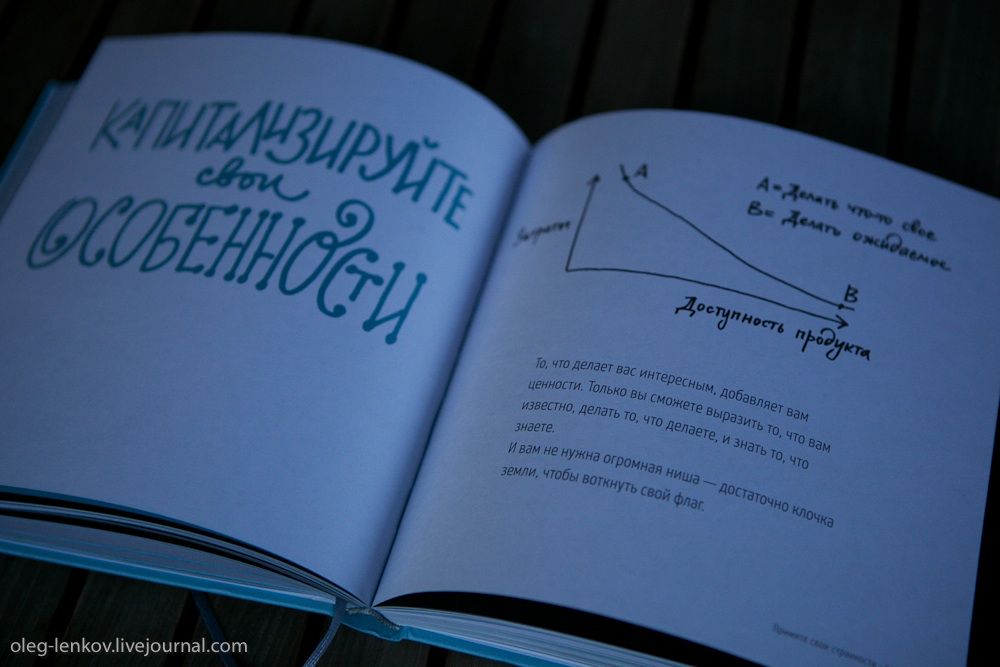 КАПИТАЛИЗИРУЙТЕ
свои
ОСОБЕННОСТИ
A
A = Делать что-то свое
B = Делать ожидаемое
B
Доступность продукта
То, что делает вас интересным, добавляет вам
ценности. Только вы сможете выразить то, что вам
известно, делать то, что делаете, и знать то, что
знаете.
И вам не нужна огромная ниша — достаточно клочка
земли, чтобы воткнуть свой флаг.
Примите свои странности
oleg-lenkov.livejournal.com